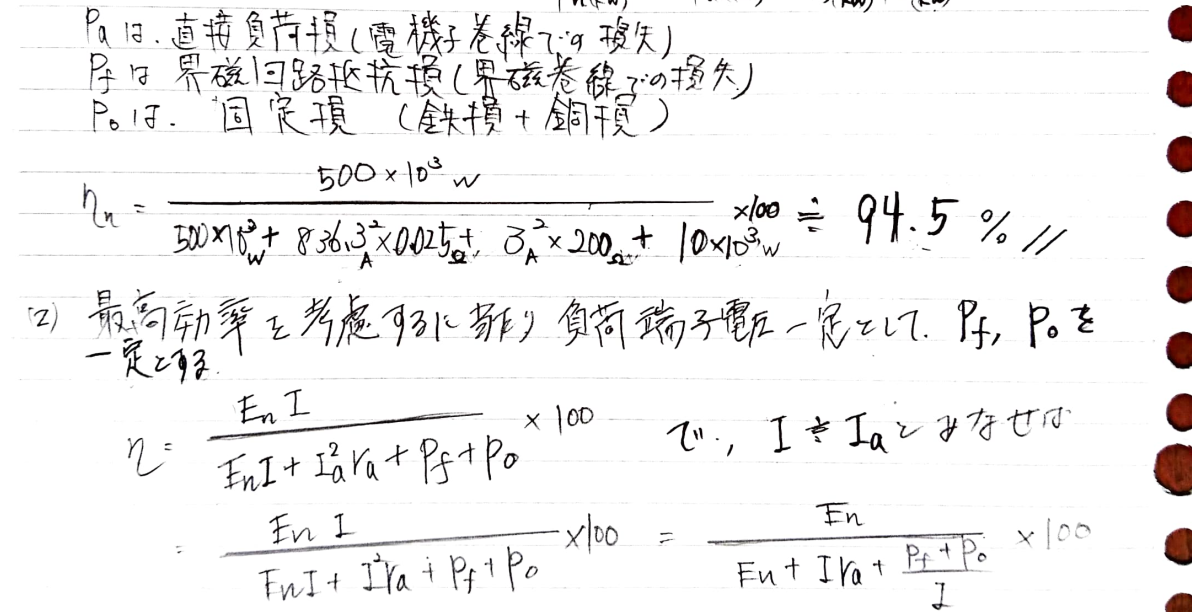 Paは、直接負荷損(電機子巻線での損失)
Pfは界磁回路抵抗損(界磁巻線での損失)
Poは、固定損 (鉄損+銅損)
ηn = 500×10³W / (500×10³W + 836.3²A×0.025Ω + 3²A×200Ω + 10×10³W) ×100 ≒ 94.5 % //
(2) 最高効率を考慮するに当たり負荷端子電圧一定として、Pf, Poを
一定とする。
η = EnI / (EnI + Ia²ra + Pf + Po) × 100 で、I ≒ Iaとみなせば
= EnI / (EnI + I²ra + Pf + Po) ×100 = En / (En + Ira + (Pf + Po)/I) × 100